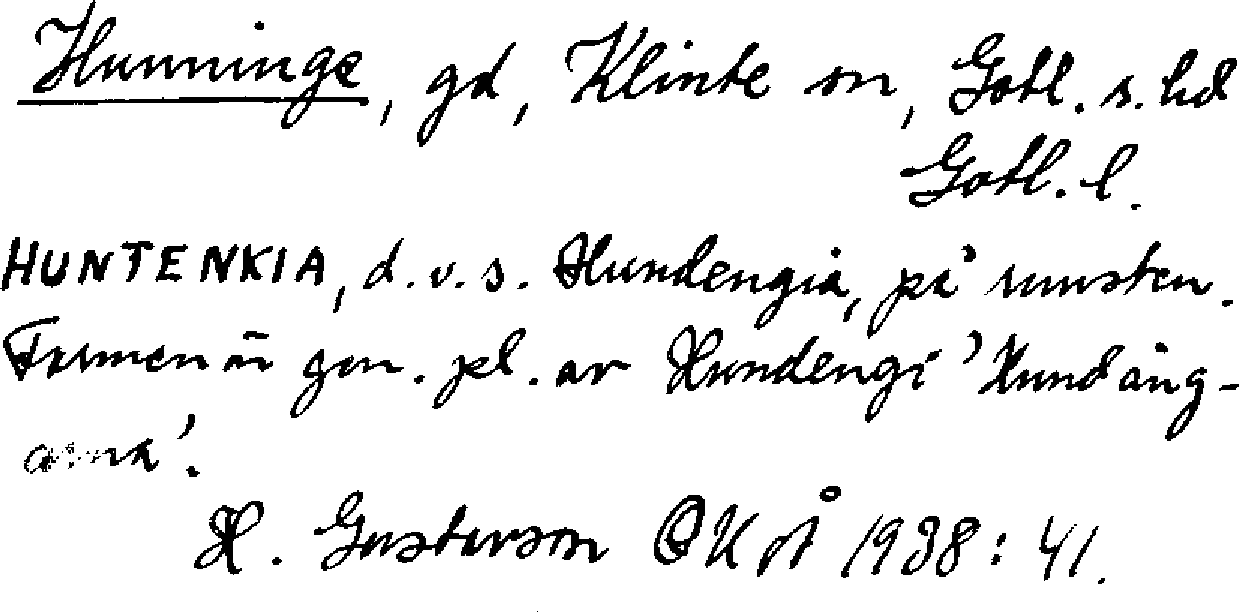 Hunninge, gd, Klinte sn, Gotl. s. hd
Gotl. l.
HUNTENKIA, d.v.s. Hundengia, på runsten.
Formen är gen. pl. av Hundengi 'Hundäng-
arna'.
H. Gustavson OUÅ 1938: 41.